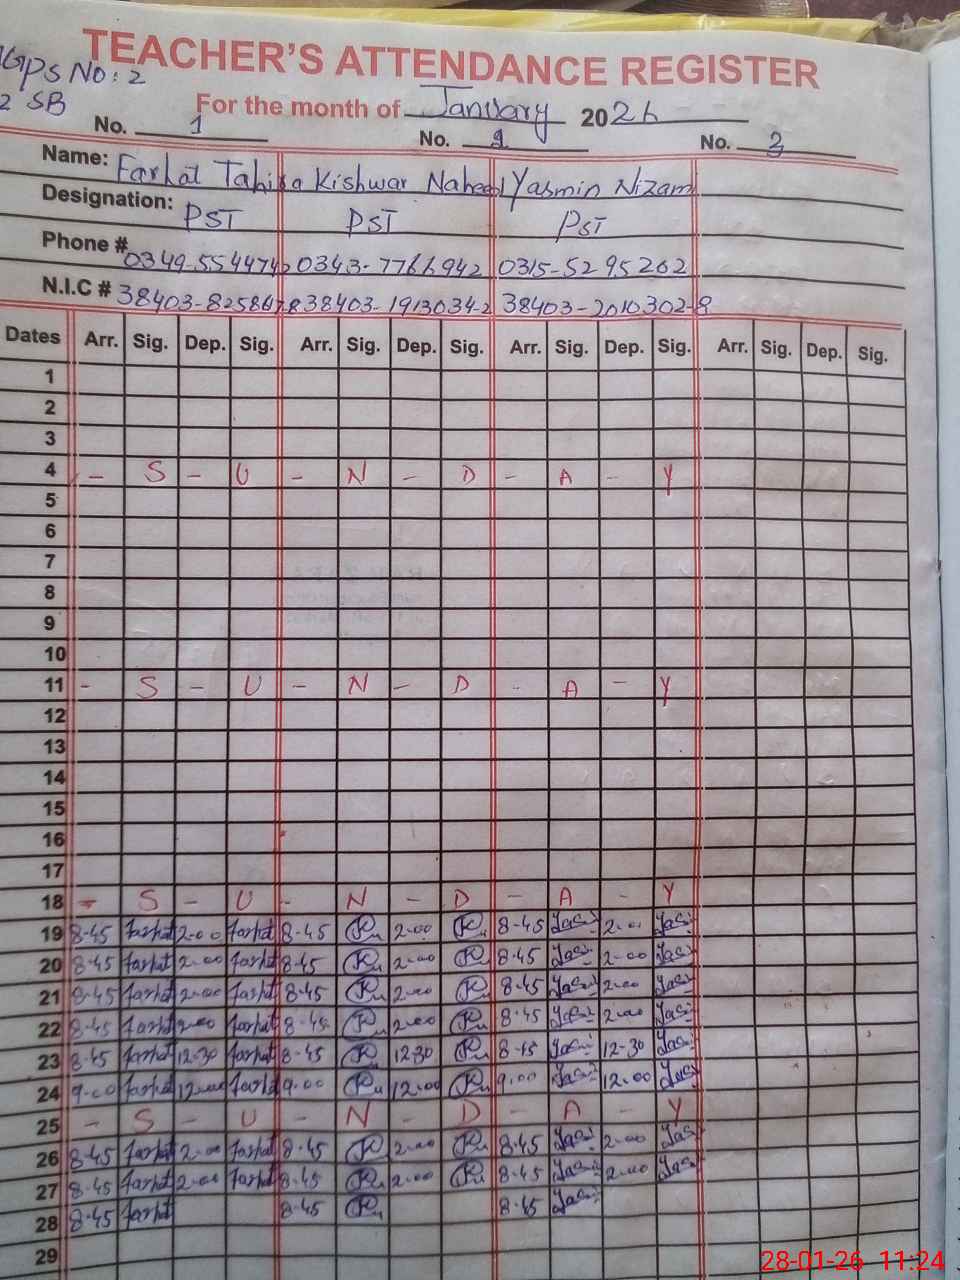 TEACHER'S ATTENDANCE REGISTER
GPS No: 2
2 SB
For the month of January 2026
No. 1 No. 2 No. 3
Name: Farhat Tahira Kishwar Naheed Yasmin Nizam
Designation: PST PST PST
Phone # 0349-5544742 0343-7766942 0315-5295262
N.I.C # 38403-8258678 38403-1913034-2 38403-2010302-8
Dates Arr. Sig. Dep. Sig. Arr. Sig. Dep. Sig. Arr. Sig. Dep. Sig. Arr. Sig. Dep. Sig.
1
2
3
4 - S - U - N - D - A - Y
5
6
7
8
9
10
11 - S - U - N - D - A - Y
12
13
14
15
16
17
18 - S - U - N - D - A - Y
19 8-45 Farhat 2-00 Farhat 8-45 2-00 8-45 Yas 2-00 Yas
20 8-45 Farhat 2-00 Farhat 8-45 2-00 8-45 Yas 2-00 Yas
21 8-45 Farhat 2-00 Farhat 8-45 2-00 8-45 Yas 2-00 Yas
22 8-45 Farhat 2-00 Farhat 8-45 2-00 8-45 Yas 2-00 Yas
23 8-45 Farhat 12-30 Farhat 8-45 12-30 8-45 Yas 12-30 Yas
24 9-00 Farhat 12-00 Farhat 9-00 12-00 9-00 Yas 12-00 Yas
25 - S - U - N - D - A - Y
26 8-45 Farhat 2-00 Farhat 8-45 2-00 8-45 Yas 2-00 Yas
27 8-45 Farhat 2-00 Farhat 8-45 2-00 8-45 Yas 2-00 Yas
28 8-45 Farhat 8-45 8-45 Yas
29
28-01-26 11:24